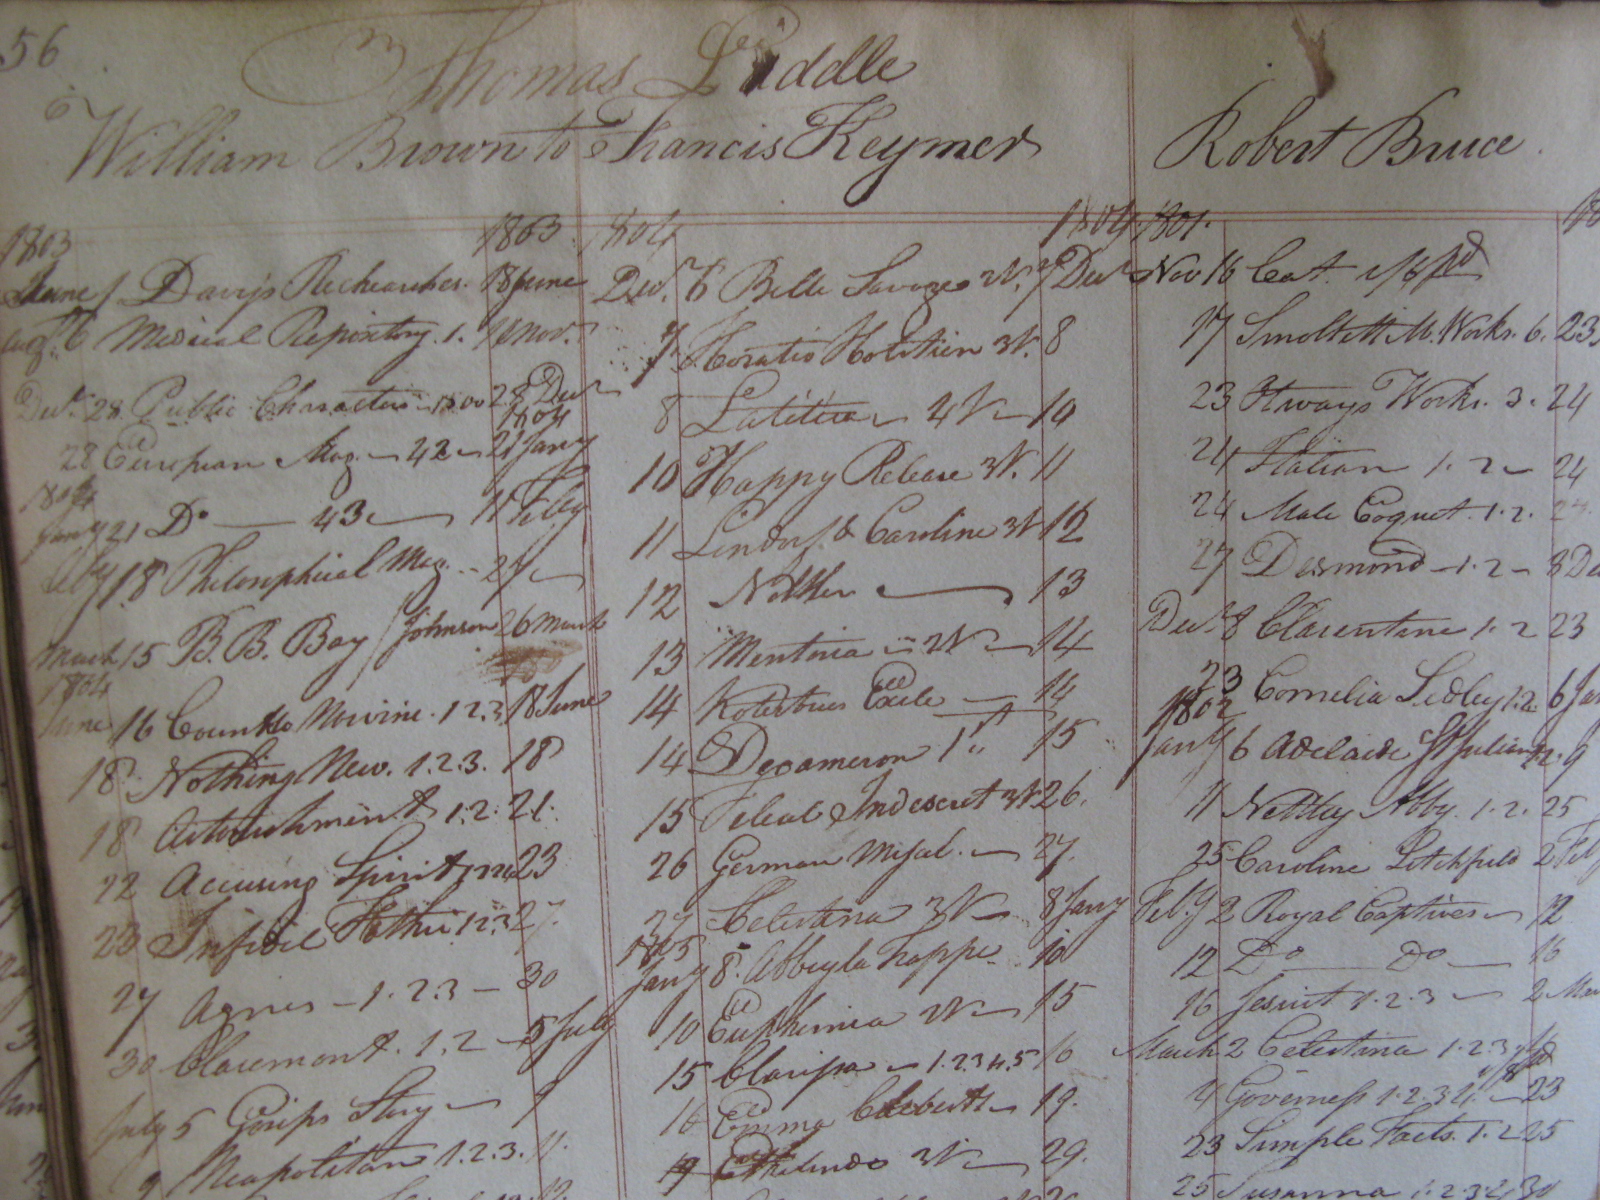 56
Thomas Liddle
William Brown to Francis Keymer
Robert Bruce
1803 1803
June 1 Davy's Rechearches. 18 June
Augt. 6 Medical Repository. 1. Novr.
Decr. 28. Public Characters 1800 28 Decr
1804
28 European Mag. 42 21 Jany
1804
Jany 21 Do 43 11 Feby
Feby 18 Philosophical Mag.
March 15 B. B. Bay / Johnson 26 March
1804
June 16 Count de Novine. 1 2.3. 18 June
18 Nothing New. 1.2.3. 18
18 Attachment 1.2. 21.
22 Accusing Spirit 23
23 Infidel Father 1.2.3 27.
27 Agnes 1.2.3 30
30 Claremont. 1.2 5 July
July 5 Gossips Story 9
9 Neapolitan 1.2.3. 11.
1804 1804
Decr. 6 Belle Savages 2V. 7 Decr
7 Horatio Holstien 3V. 8
8 Latitia 4V 10
10 Happy Release 3V. 11
11 Lindorf & Caroline 3V 12
12 13
13 Mentoria 2V 14
14 Kotzebues Exile 14
14 Decameron 1st 15
15 Indescret 3V 26.
26 German Misal. 27.
27 Celestina 3V 8 Jany
1805
Jany 8. 10
10 Euphemia 2V 15
15 Clarissa 1.2 3 4.5 16
16 Emma 19.
19 Ethelinde 3V 29.
1801.
Nov 16 Cat. 1/6 pd
17 Smolletts M. Works. 6. 23
23 Otways Works. 3. 24
24 Italian 1. 2 24
24 Male Coquet. 1.2. 27.
27 Desmond 1. 2 8 De
Decr. 8 Clarentine 1. 2 23
23 Cornelia Sedley 1.2. 6 Jan
1802
Jany 6 Adelaide St Julian 9
11 Nettley Abby. 1.2. 25
25 Caroline Litchfield 2 Feb
Feby 2 Royal Captives 12
12 Do Do 16
16 Jesuit 1.2.3 2 Mar
March 2 Celestina 1.2.3
4 Governess 1.2.3 4. 23
23 Simple Facts. 1.2 25
25 Susanna 1.2.3.4 30